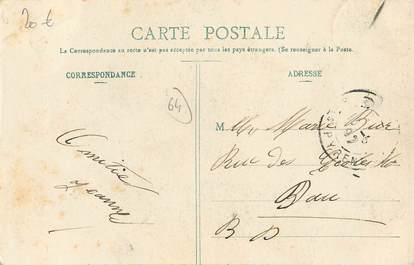 20 €
CARTE POSTALE
La Correspondance au recto n'est pas acceptée par tous les pays étrangers. (Se renseigner à la Poste.
CORRESPONDANCE
ADRESSE
64
M
Marie
Rue des
Pau
B P
Amitié
Jeanne